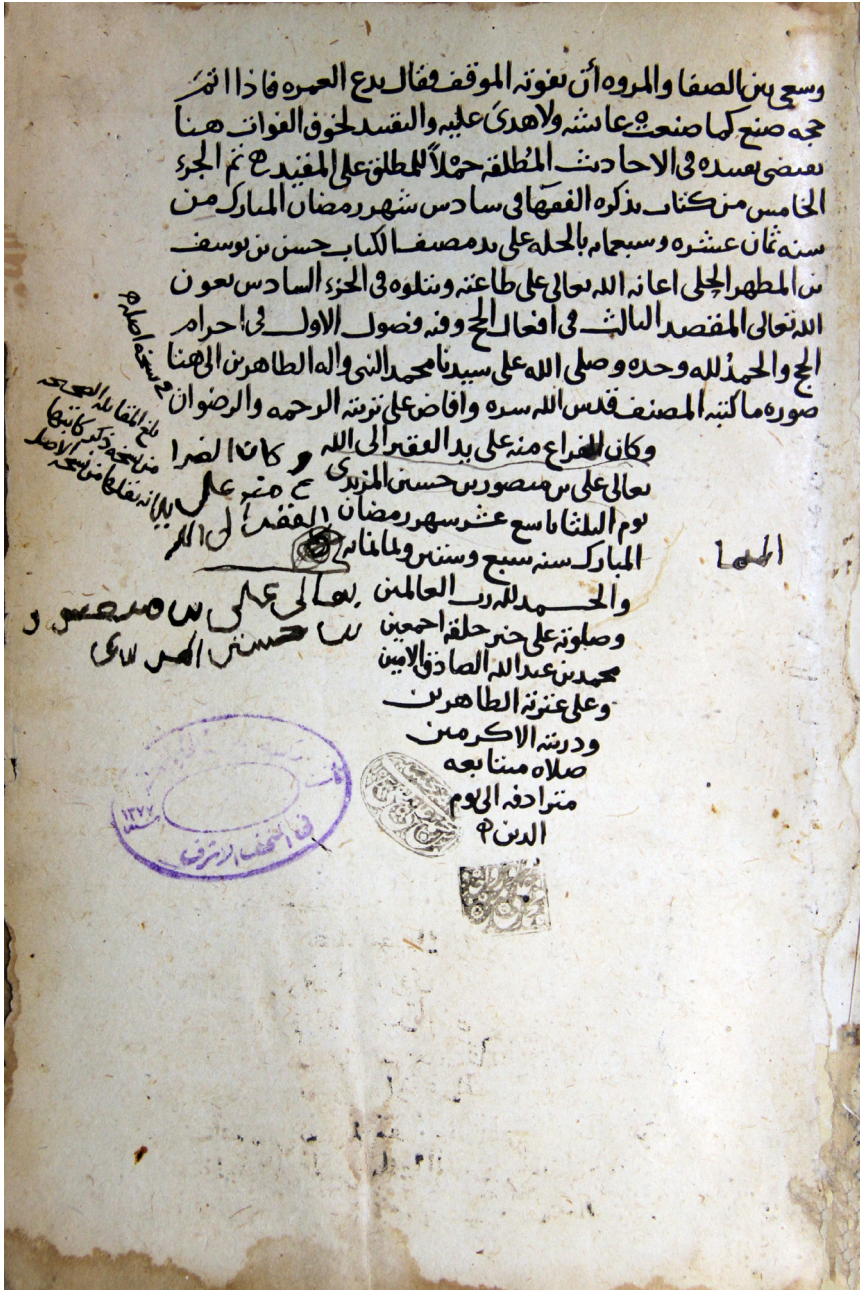 وسعى بين الصفا والمروه أن يفوته الموقف فقال يدع العمره فاذا اتمّ
حجه صنع كما صنعت عائشه ولا هدىَ عليه والتقييد لخوف الفوات هنا
يقتضى تقييده فى الاحاديث المُطلقه حملاً للمطلق على المقيد تم الجزء
الخامس من كتاب تذكره الفقها فى سادس شهر رمضان المبارك من
سنه ثمان عشره وسبعمايه بالحله على يد مصنف الكتاب حسن بن يوسف
بن المطهر الحلى اعانه الله تعالى على طاعته ويتلوه فى الجزء السادس بعون
الله تعالى المقصد الثالث فى افعال الحج وفيه فصول الاول فى احرام
الحج والحمدُ لله وحده وصلى الله على سيدنا محمد النبى واله الطاهرين الى هنا
صوره ما كتبه المصنف قدس الله سره وافاض على تربته الرحمه والرضوان
وكان الفراغ منه على يد الفقير الى الله
تعالى على بن منصور بن حسين المزيدى
يوم الثلثا تاسع عشر شهر رمضان
المبارك سنه سبع وستين وثمانمايه
والحمد لله رب العالمين
وصلوته على خير خلقه اجمعين
محمد بن عبد الله الصادق الامين
وعلى عترته الطاهرين
وذريته الاكرمين
صلاه متتابعه
مترادفه الى يوم
الدين
بلغ المقابله الصحيحه
من نسخه ذكر كاتبها
انه نقلها من نسخه الأصل
وكان الفرا
غ منه على يد
الفقير الى الله
تعالى على بن منصور
بن حسين المزيدى
فى النجف الاشرف
١٣٧٧